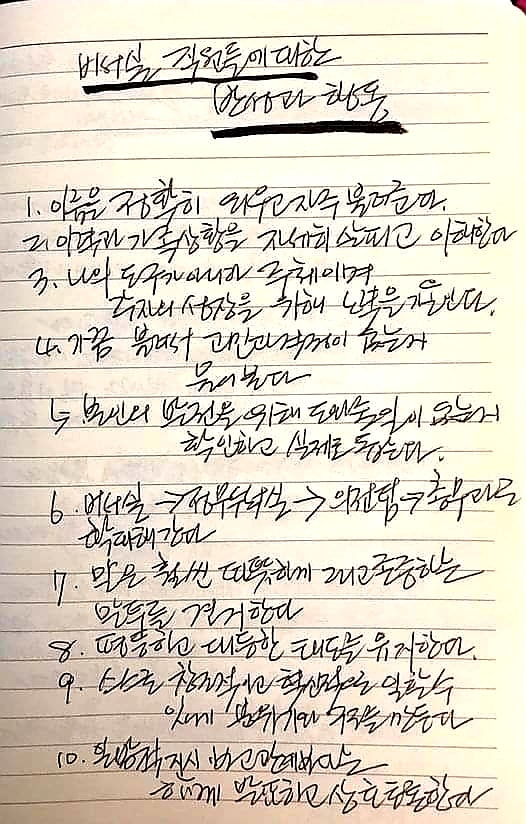 비서실 직원들에 대한
반성과 행동
1. 이름을 정확히 외우고 자주 불러준다.
2. 이력과 가족상황을 자세히 살피고 이해한다
3. 나의 도구가 아니라 주체이며
각자의 성장을 위해 노력을 기울인다.
4. 가끔 불러서 고민과 걱정이 없는지
물어본다
5. 본인의 발전을 위해 도와줄 일이 없는지
확인하고 실제로 돕는다.
6. 비서실 → 정무부시장실 → 의전팀 → 총무과로
확대해간다
7. 말은 훨씬 따뜻하게 그리고 존중하는
말투를 견지한다
8. 평등하고 대등한 태도를 유지한다.
9. 스스로 창조적이고 혁신적으로 일할 수
있게 분위기와 구조를 만든다
10. 일방적 지시 보고관계보다는
함께 발표하고 상호토론한다